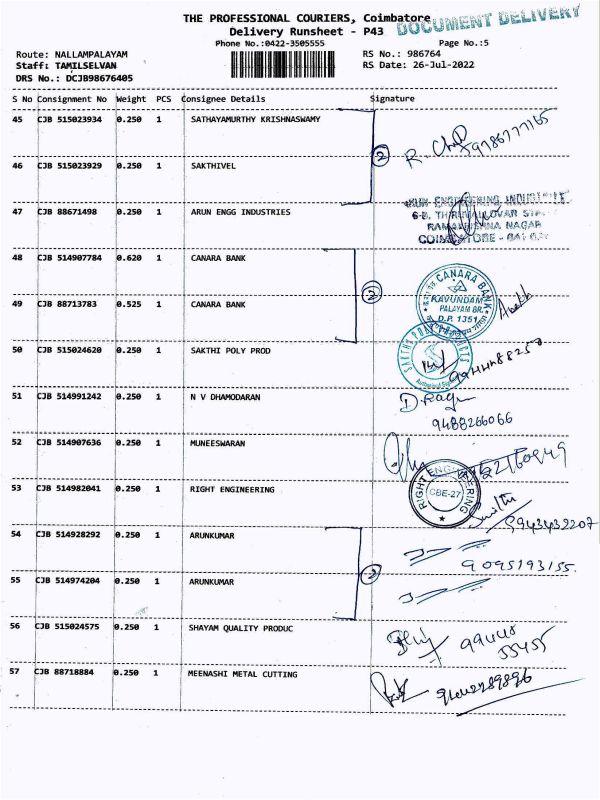 THE PROFESSIONAL COURIERS, Coimbatore
DOCUMENT DELIVERY
Delivery Runsheet - P43
Phone No.:0422-3505555
Page No.:5
Route: NALLAMPALAYAM
RS No.: 986764
Staff: TAMILSELVAN
RS Date: 26-Jul-2022
DRS No.: DCJB98676405
S No Consignment No Weight PCS Consignee Details Signature
45 CJB 515023934 0.250 1 SATHAYAMURTHY KRISHNASWAMY
2
46 CJB 515023929 0.250 1 SAKTHIVEL
47 CJB 88671498 0.250 1 ARUN ENGG INDUSTRIES
RAMAKRISHNA NAGAR
48 CJB 514907784 0.620 1 CANARA BANK
2
CANARA BANK
KAVUNDAM
PALAYAM BR.
D.P. 1351
49 CJB 88713783 0.525 1 CANARA BANK
50 CJB 515024620 0.250 1 SAKTHI POLY PROD
51 CJB 514991242 0.250 1 N V DHAMODARAN
9488266066
52 CJB 514907636 0.250 1 MUNEESWARAN
53 CJB 514982041 0.250 1 RIGHT ENGINEERING
RIGHT ENGINEERING
CBE-27
9943439207
54 CJB 514928292 0.250 1 ARUNKUMAR
2
9095193155
55 CJB 514974204 0.250 1 ARUNKUMAR
56 CJB 515024575 0.250 1 SHAYAM QUALITY PRODUC
99448
55455
57 CJB 88718884 0.250 1 MEENASHI METAL CUTTING